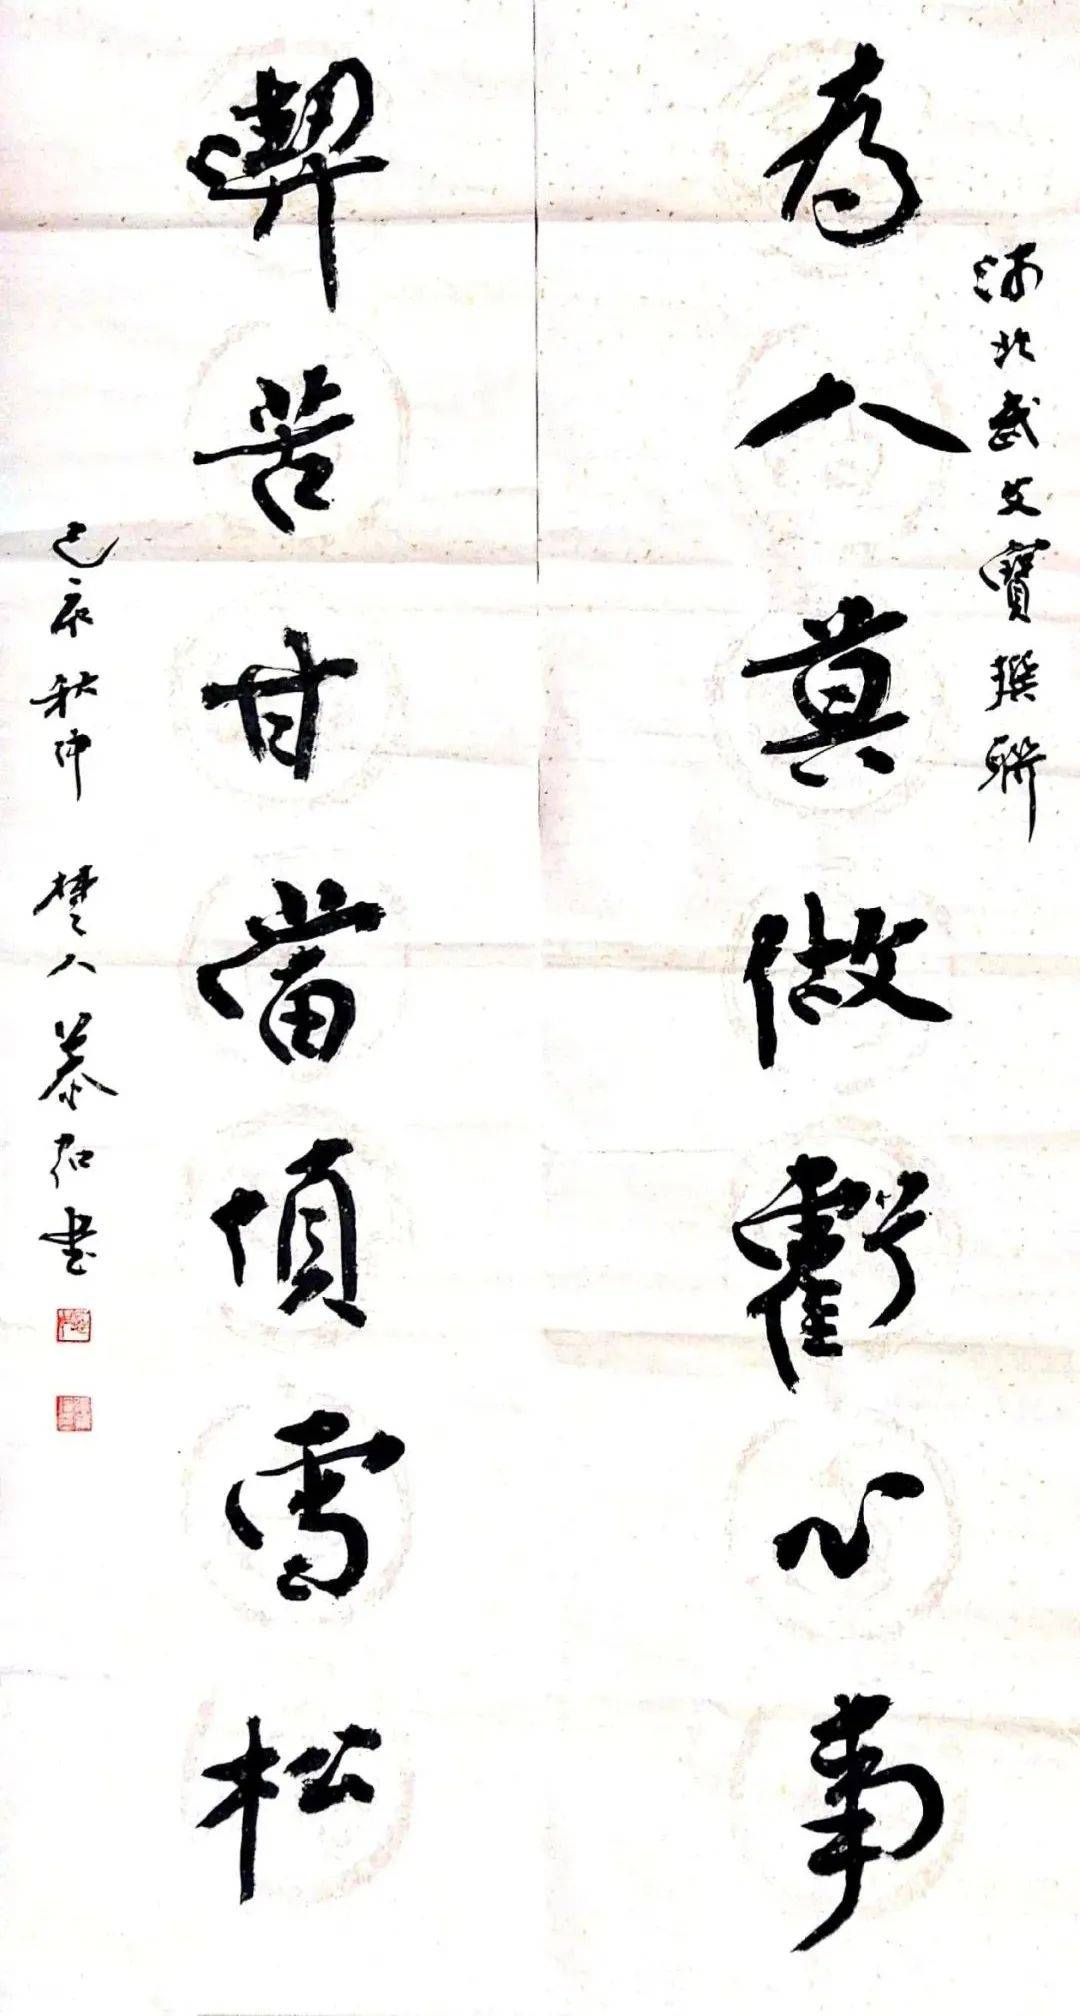 河北武文寶撰聯
為人莫做虧心事
喫苦甘當頂雪松
己亥秋仲 楚人慕弘書